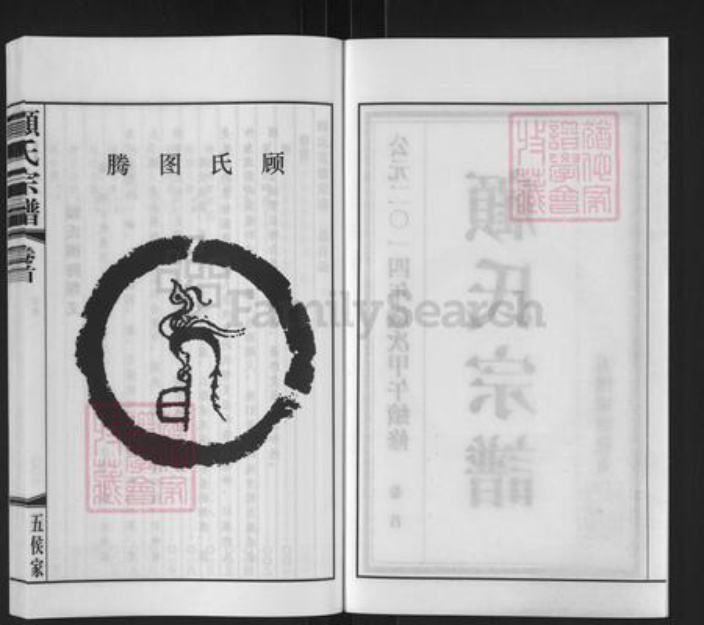 顧氏宗譜
卷首
五侯家
顾氏图腾
FamilySearch
顧氏宗譜
公元二〇一四年歲次甲午續修
卷首